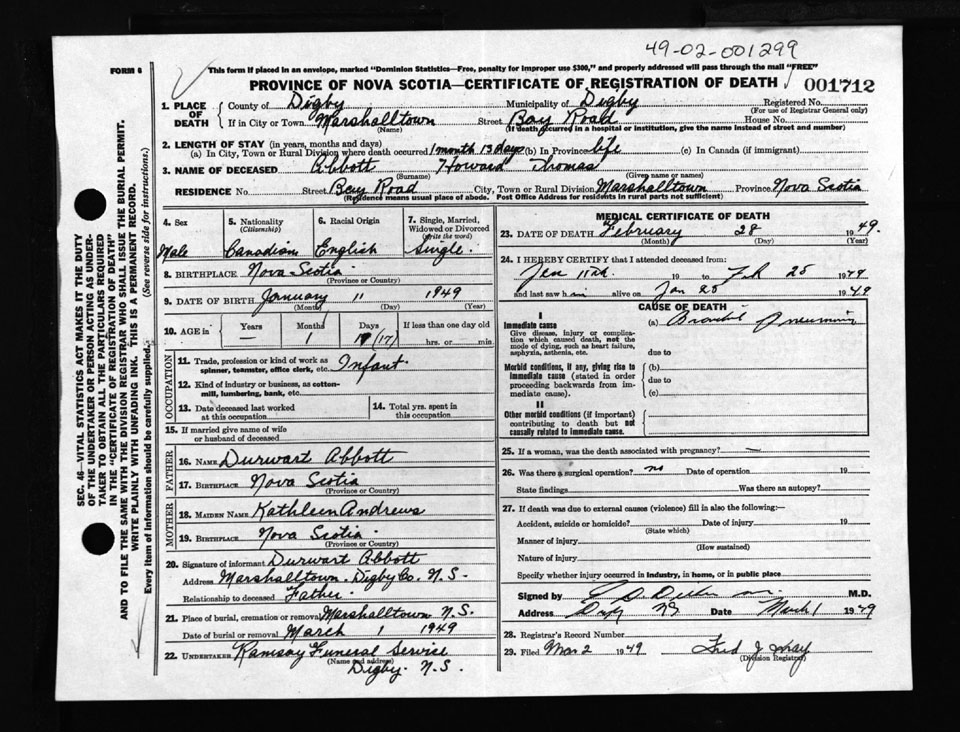 49-02-001299
FORM 6
This form if placed in an envelope, marked "Dominion Statistics—Free, penalty for improper use $300," and properly addressed will pass through the mail "FREE"
PROVINCE OF NOVA SCOTIA—CERTIFICATE OF REGISTRATION OF DEATH 001712
SEC. 46—VITAL STATISTICS ACT MAKES IT THE DUTY
OF THE UNDERTAKER OR PERSON ACTING AS UNDER-
TAKER TO OBTAIN ALL THE PARTICULARS REQUIRED
IN THE "CERTIFICATE OF REGISTRATION OF DEATH"
AND TO FILE THE SAME WITH THE DIVISION REGISTRAR WHO SHALL ISSUE THE BURIAL PERMIT.
WRITE PLAINLY WITH UNFADING INK. THIS IS A PERMANENT RECORD.
Every item of information should be carefully supplied. (See reverse side for instructions.)
1. PLACE OF DEATH
County of Digby Municipality of Digby Registered No.
(For use of Registrar General only)
If in City or Town Marshalltown Street Bay Road House No.
(Name) (If death occurred in a hospital or institution, give the name instead of street and number)
2. LENGTH OF STAY (in years, months and days)
(a) In City, Town or Rural Division where death occurred 1 month 13 days (b) In Province life (c) In Canada (if immigrant)
3. NAME OF DECEASED Abbott Howard Thomas
(Surname) (Given name or names)
RESIDENCE No. Street Bay Road City, Town or Rural Division Marshalltown Province Nova Scotia
(Residence means usual place of abode. Post Office Address for residents in rural parts not sufficient)
4. Sex
Male
5. Nationality
(Citizenship)
Canadian
6. Racial Origin
English
7. Single, Married,
Widowed or Divorced
(Write the word)
Single
8. BIRTHPLACE Nova Scotia
(Province or Country)
9. DATE OF BIRTH January 11 1949
(Month) (Day) (Year)
10. AGE in
Years Months Days If less than one day old
— 1 (17) hrs. or min.
OCCUPATION
11. Trade, profession or kind of work as
spinner, teamster, office clerk, etc. Infant
12. Kind of industry or business, as cotton-
mill, lumbering, bank, etc.
13. Date deceased last worked
at this occupation
14. Total yrs. spent in
this occupation
15. If married give name of wife
or husband of deceased
FATHER
16. NAME Durwart Abbott
17. BIRTHPLACE Nova Scotia
(Province or Country)
MOTHER
18. MAIDEN NAME Kathleen Andrews
19. BIRTHPLACE Nova Scotia
(Province or Country)
20. Signature of informant Durwart Abbott
Address Marshalltown. Digby Co. N.S.
Relationship to deceased Father.
21. Place of burial, cremation or removal Marshalltown N.S.
Date of burial or removal March 1 1949
22. UNDERTAKER Ramsay Funeral Service
(Name and address)
Digby. N.S.
MEDICAL CERTIFICATE OF DEATH
23. DATE OF DEATH February 28 1949
(Month) (Day) (Year)
24. I HEREBY CERTIFY that I attended deceased from:
Jan 11th 19 to Feb 25 1949
and last saw him alive on Jan 25 1949
CAUSE OF DEATH
I
Immediate cause
Give disease, injury or complica-
tion which caused death, not the
mode of dying, such as heart failure,
asphyxia, asthenia, etc.
(a) Pneumonia
due to
Morbid conditions, if any, giving rise to
immediate cause (stated in order
proceeding backwards from im-
mediate cause).
(b)
due to
(c)
II
Other morbid conditions (if important)
contributing to death but not
causally related to immediate cause.
25. If a woman, was the death associated with pregnancy? —
26. Was there a surgical operation? no Date of operation 19
State findings Was there an autopsy?
27. If death was due to external causes (violence) fill in also the following:—
Accident, suicide or homicide? Date of injury 19
(State which)
Manner of injury
(How sustained)
Nature of injury
Specify whether injury occurred in industry, in home, or in public place
Signed by M.D.
Address Digby NS Date March 1 1949
28. Registrar's Record Number
29. Filed Mar 2 1949 Fred J
(Division Registrar)